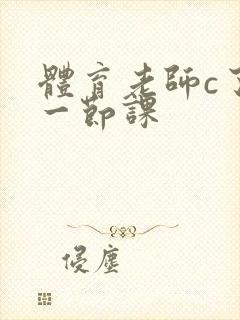 體育老師c了
一節課
侵塵